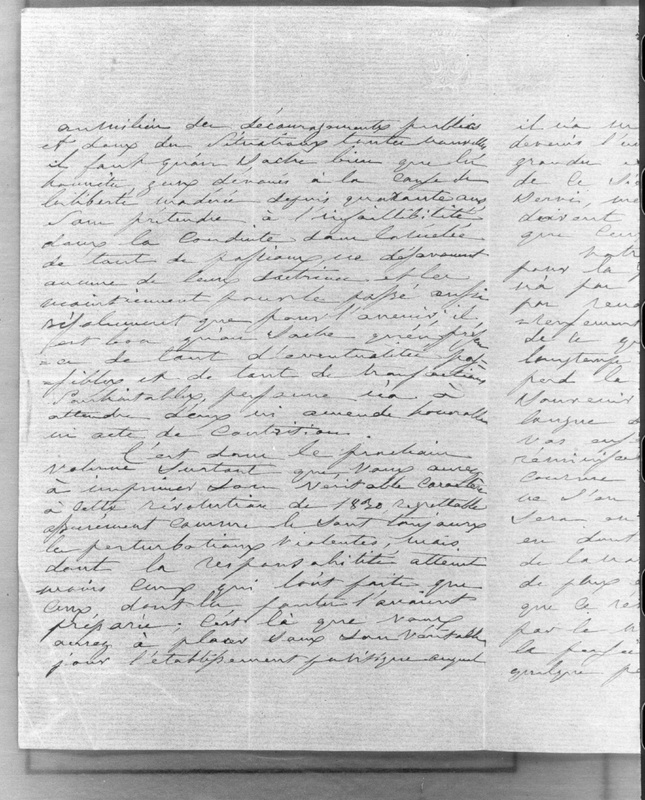 au milieu des découragements publics
et dans des situations toutes nouvelles
il faut qu'on sache bien que les
hommes dévoués à la cause de
la liberté modérée depuis quarante ans
sans prétendre à l'infaillibilité
dans la conduite dans la mêlée
de tant de passions, ne désavouent
aucune de leurs doctrines et les
maintiennent pour le passé aussi
résolument que pour l'avenir, il
est bon qu'on sache qu'en présen
-ce de tant d'éventualités pos-
sibles et de tant de transactions
souhaitables, personne n'a à
attendre d'eux ni amende honorable
ni acte de contrition.
C'est dans le prochain
volume surtout que vous aurez
à imprimer son véritable caractère
à cette révolution de 1830, regrettable
assurément comme le sont toujours
les perturbations violentes, mais
dont la responsabilité atteint
moins ceux qui l'ont faite que
ceux dont les fautes l'avaient
préparée; c'est là que vous
aurez à placer sous son véritable
jour l'établissement politique auquel
il n'a m
devenu l'u
grandes
de ce Siè
servir, me
doivent
que leur
Votre
pour la
n'a pas
par reno
-versement
de ce qu
longtemps
perd le
souvenir
langue d
vos
réminisce
comme
ne s'en
sera en
en dout
de la na
de plus
que ce re
par la
la pensée
quelque pe